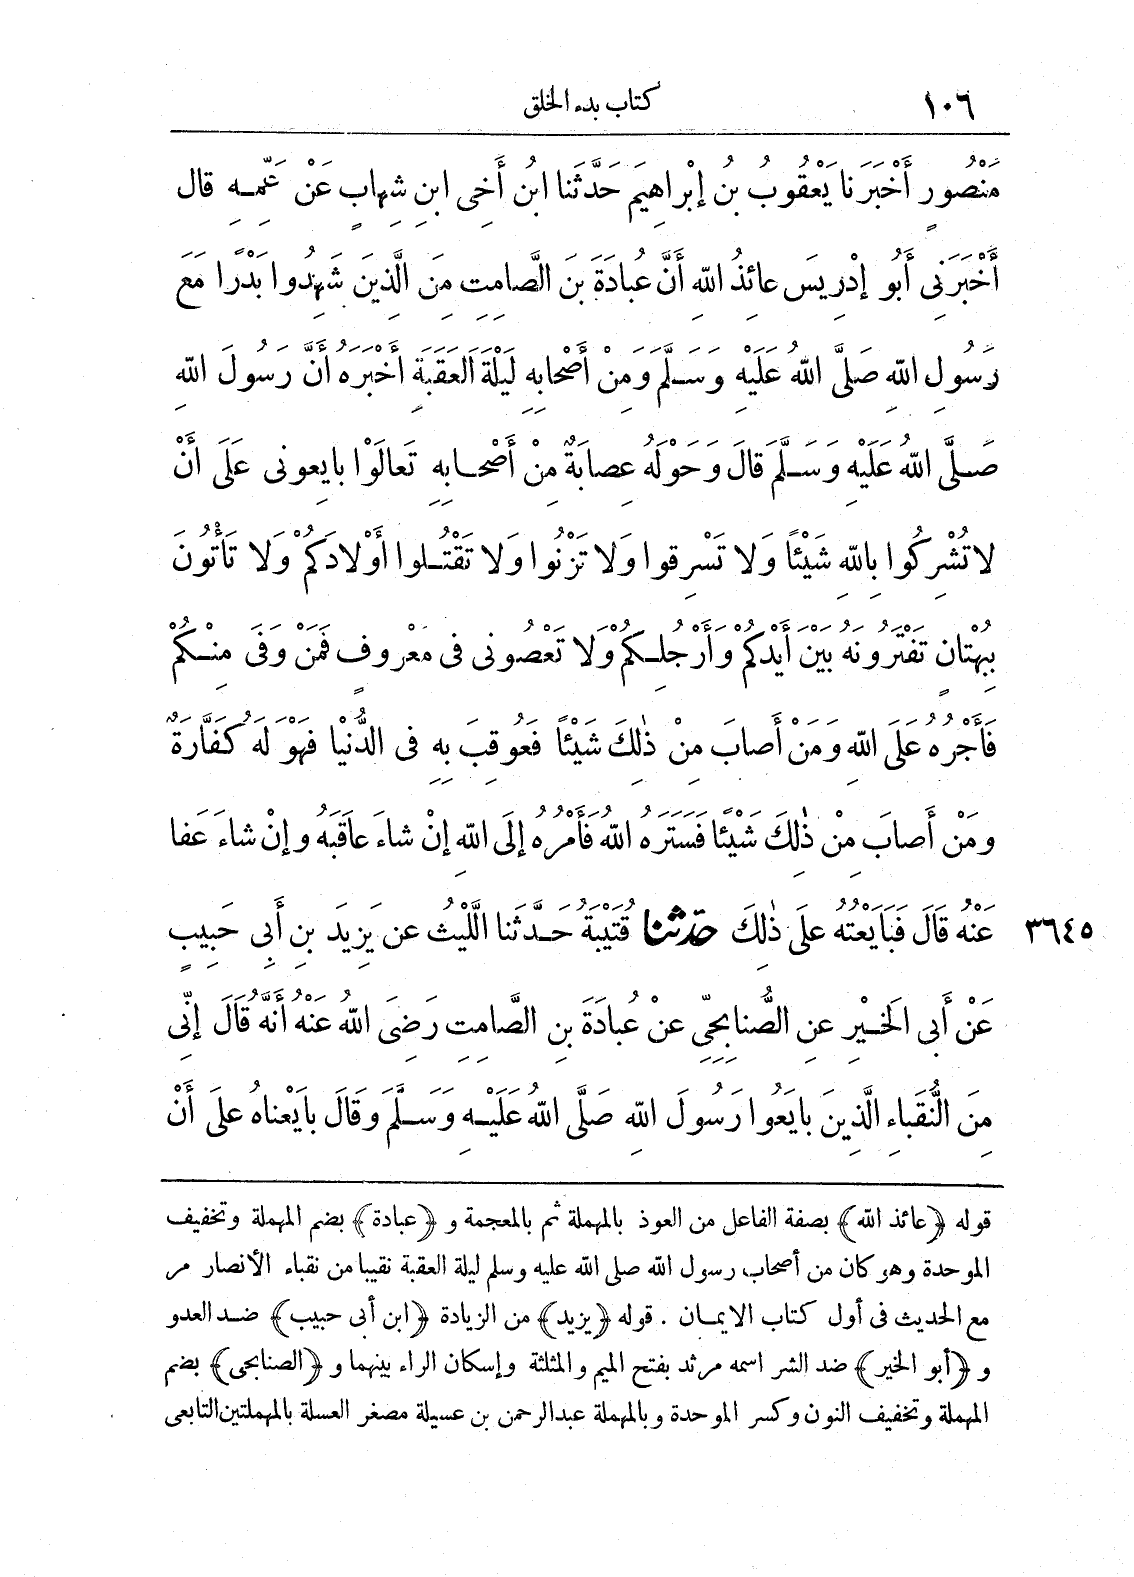 ١٠٦ كتاب بدء الخلق
مَنْصُورٍ أَخْبَرَنا يَعْقُوبُ بنُ إبْراهِيمَ حَدَّثَنا ابنُ أَخِى ابنِ شِهابٍ عَنْ عَمِّهِ قال
أَخْبَرَنِى أَبُو إدْرِيسَ عائِذُ اللهِ أَنَّ عُبادَةَ بنَ الصَّامِتِ مِنَ الَّذِينَ شَهِدُوا بَدْرًا مَعَ
رَسُولِ اللهِ صَلَّى اللهُ عَلَيْهِ وَسَلَّمَ وَمِنْ أَصْحابِهِ لَيْلَةَ العَقَبَةِ أَخْبَرَهُ أَنَّ رَسُولَ اللهِ
صَلَّى اللهُ عَلَيْهِ وَسَلَّمَ قالَ وَحَوْلَهُ عِصابَةٌ مِنْ أَصْحابِهِ تَعالَوْا بايِعونى عَلَى أَنْ
لا تُشْرِكُوا بِاللهِ شَيْئًا وَلا تَسْرِقوا وَلا تَزْنُوا وَلا تَقْتُلوا أَوْلادَكُمْ وَلا تَأْتُونَ
بِبُهْتانٍ تَفْتَرُونَهُ بَيْنَ أَيْدِيكُمْ وَأَرْجُلِكُمْ وَلا تَعْصُونى فى مَعْرُوفٍ فَمَنْ وَفَى مِنْكُمْ
فَأَجْرُهُ عَلَى اللهِ وَمَنْ أَصابَ مِنْ ذٰلِكَ شَيْئًا فَعُوقِبَ بِهِ فى الدُّنْيا فَهْوَ لَهُ كَفَّارَةٌ
ومَنْ أَصابَ مِنْ ذٰلِكَ شَيْئًا فَسَتَرَهُ اللهُ فَأَمْرُهُ إلَى اللهِ إنْ شاءَ عاقَبَهُ وإنْ شاءَ عَفا
٣٦٤٥ عَنْهُ قالَ فَبايَعْتُهُ عَلَى ذٰلِكَ حَدَّثَنا قُتَيْبَةُ حَدَّثَنا اللَّيْثُ عن يَزِيدَ بنِ أَبِى حَبِيبٍ
عَنْ أَبى الخَيْرِ عنِ الصُّنابِحِيِّ عَنْ عُبادَةَ بنِ الصَّامِتِ رَضِىَ اللهُ عنهُ أَنَّهُ قالَ إنِّى
مِنَ النُّقَباءِ الَّذِينَ بايَعُوا رَسُولَ اللهِ صَلَّى اللهُ عَلَيْهِ وَسَلَّمَ وقالَ بايَعْناهُ عَلَى أَنْ
قوله ﴿عائذ الله﴾ بصفة الفاعل من العوذ بالمهملة ثم بالمعجمة و ﴿عبادة﴾ بضم المهملة وتخفيف
الموحدة وهو كان من أصحاب رسول الله صلى الله عليه وسلم ليلة العقبة نقيبا من نقباء الأنصار مر
مع الحديث فى أول كتاب الايمان . قوله ﴿يزيد﴾ من الزيادة ﴿ابن أبى حبيب﴾ ضد العدو
و ﴿أبو الخير﴾ ضد الشر اسمه مرثد بفتح الميم والمثلثة وإسكان الراء بينهما و ﴿الصنابحى﴾ بضم
المهملة وتخفيف النون وكسر الموحدة وبالمهملة عبدالرحمن بن عسيلة مصغر العسلة بالمهملتين التابعى